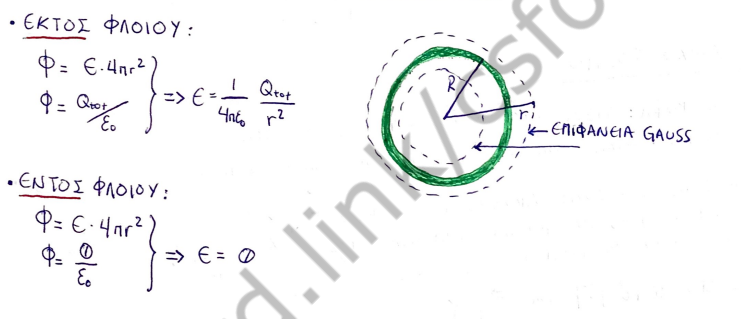 • ΕΚΤΟΣ ΦΛΟΙΟΥ:
Φ = Ε·4πr²
Φ = Qtot/ε₀
=> Ε = 1/4πε₀ Qtot/r²
R
r
← ΕΠΙΦΑΝΕΙΑ GAUSS
• ΕΝΤΟΣ ΦΛΟΙΟΥ:
Φ = Ε·4πr²
Φ = 0/ε₀
=> Ε = 0
d.link/csfo